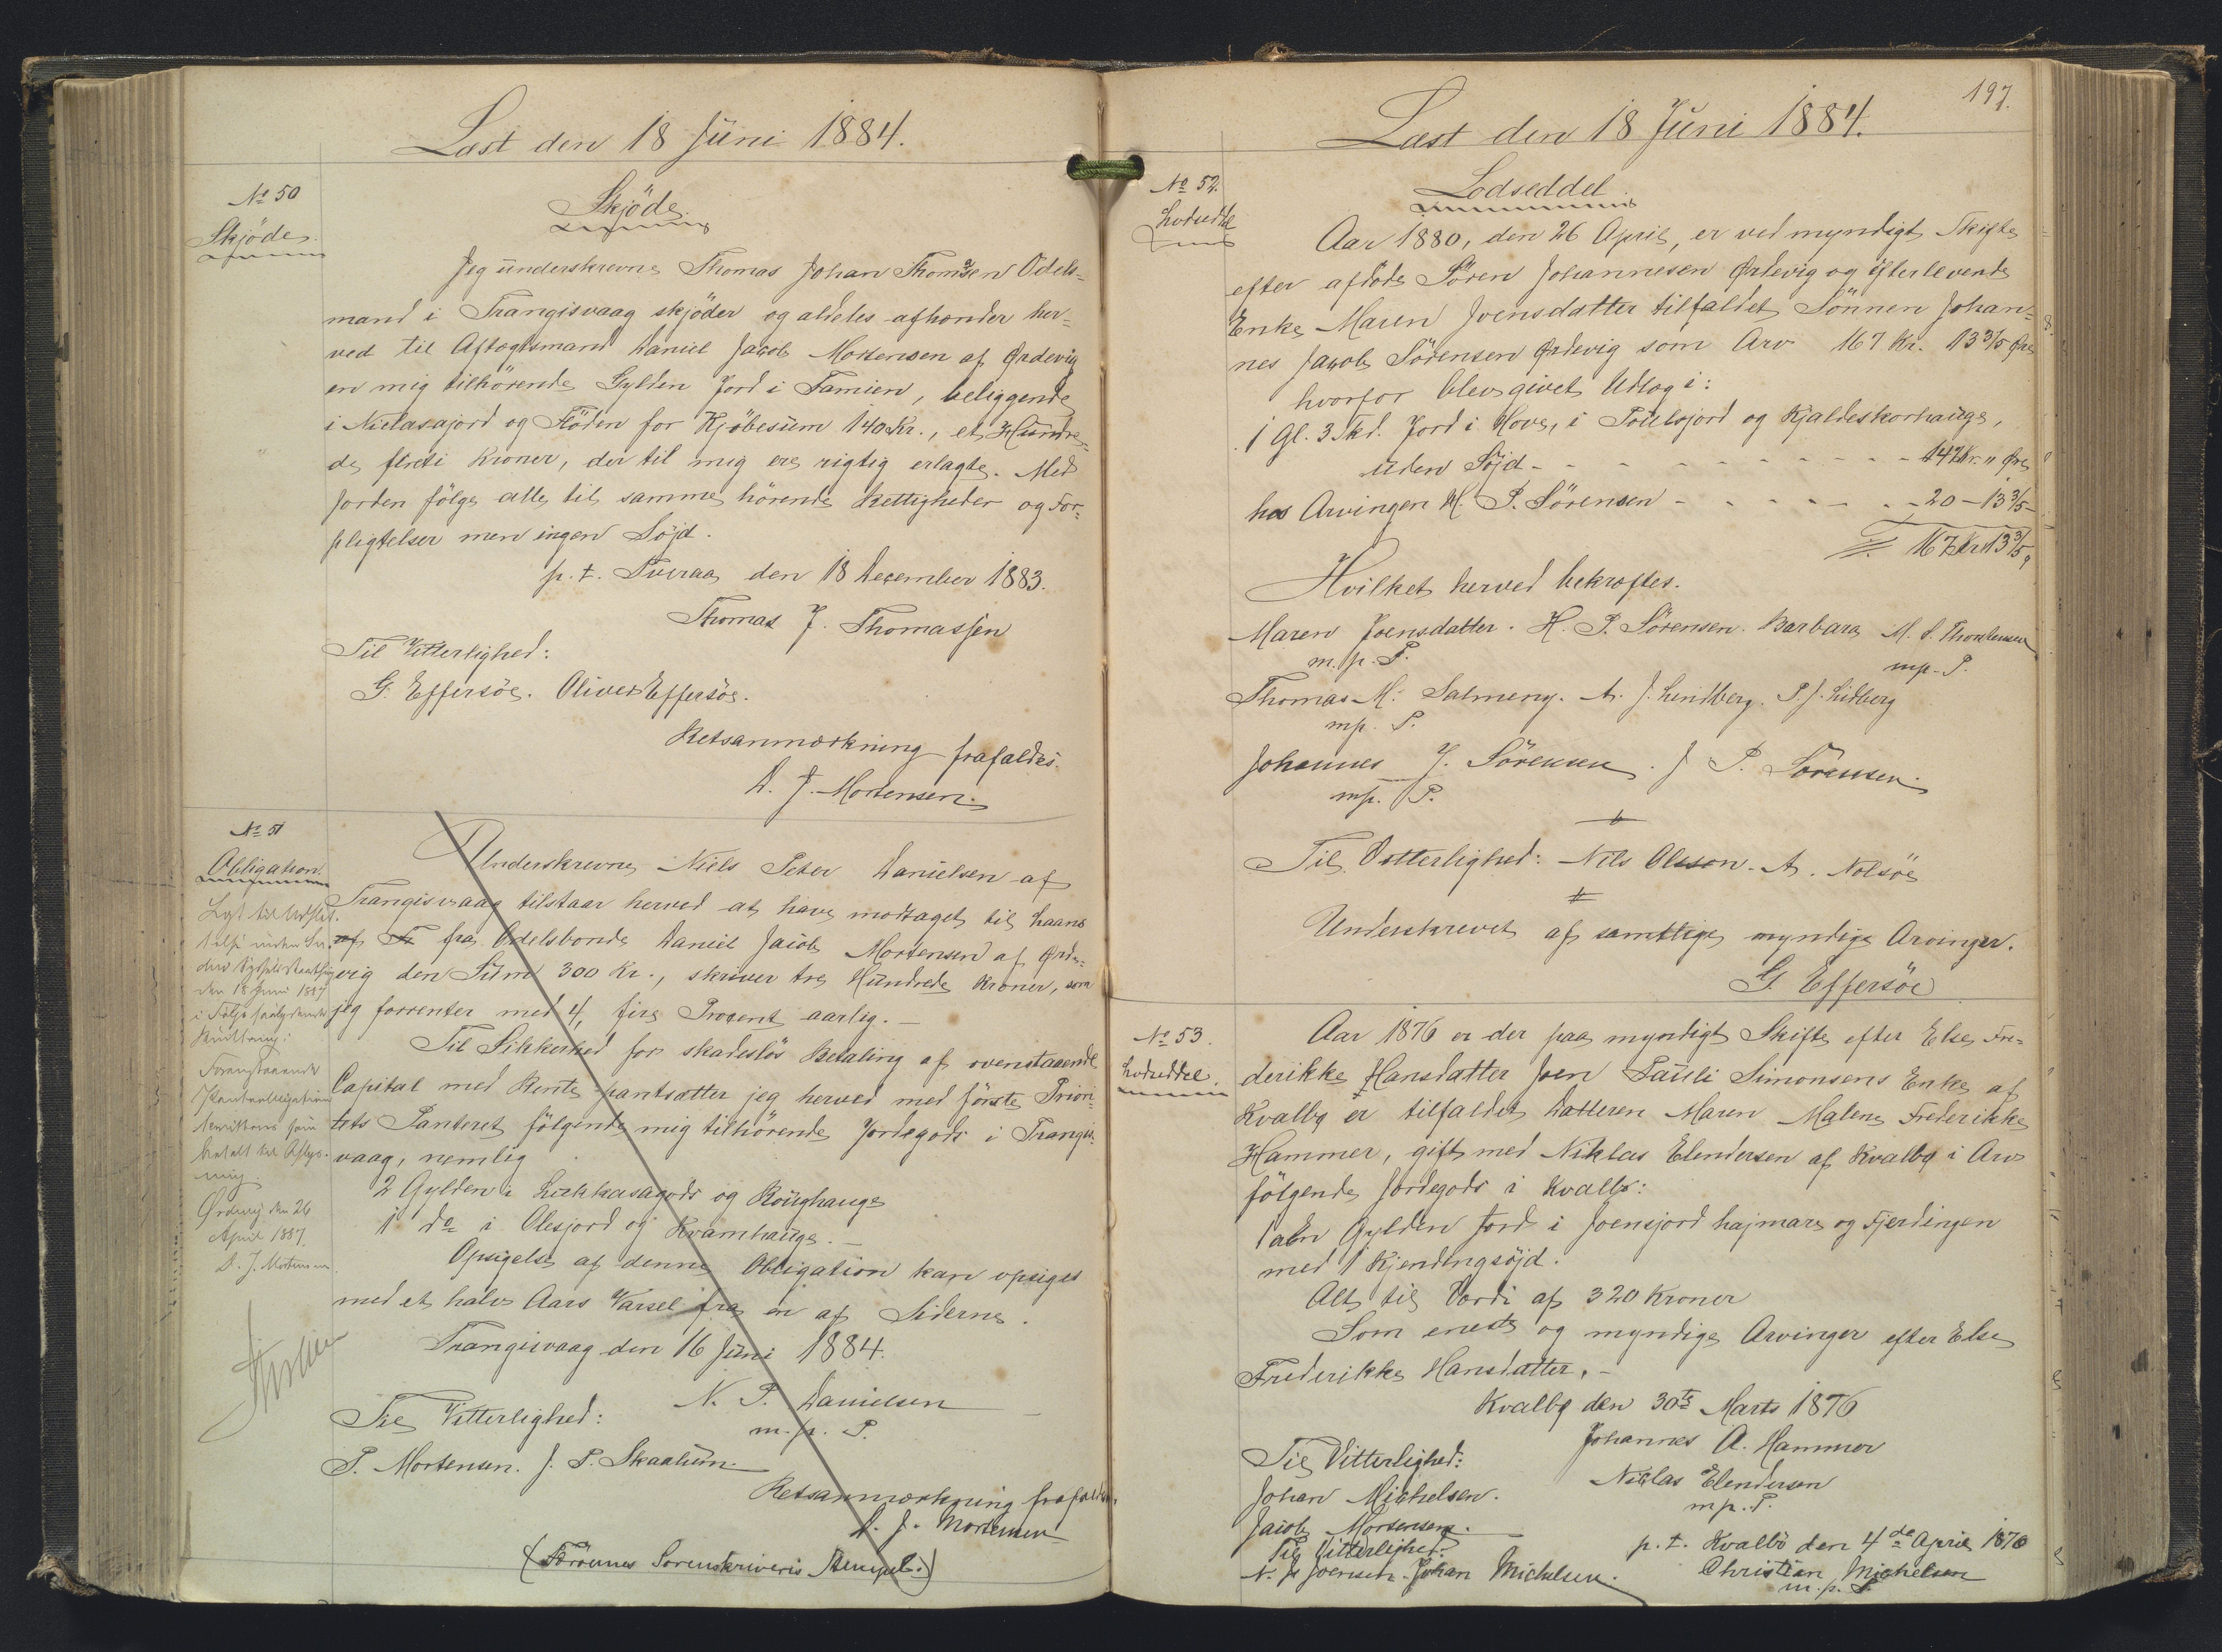 Læst den 18 Juni 1884.
No 50
Skjöde.
Skjöde.
Jeg underskrevne Thomas Johan Thomsen Odels=
mand i Trangisvaag skjöder og aldeles afhænder her=
ved til Aftægtsmand Daniel Jacob Mortensen af Ørdevig
en mig tilhörende Gylden Jord i Famien, beliggende
i Nielasajord og Flöden for Kjöbesum 140 Kr., et Hundre=
de fireti Kroner, der til mig ere rigtig erlagte. Med
Jorden fölge alle til samme hörende Rettigheder og For=
pligtelser men ingen Söjd.
p. t. Tveraa den 18 December 1883.
Thomas J. Thomassen
Til Vitterlighed:
G. Effersöe. Oliver Effersöe.
Retsanmærkning frafaldes.
D. J. Mortensen.
No 51
Obligation.
Underskrevne Niels Peter Danielsen af
Trangisvaag tilstaar herved at have modtaget til Laans
af fra Odelsbonde Daniel Jacob Mortensen af Ørde=
vig den Sum 300 Kr., skriver tre Hundrede Kroner, som
jeg forrenter med 4, fire Procent aarlig.
Til Sikkerhed for skadeslös Betaling af ovenstaaende
Capital med Rente pantsætter jeg herved med förste Priori=
tets Panteret fölgende mig tilhörende Jordegods i Trangis=
vaag, nemlig
2 Gylden i Lukkasagods og Roughauge
1 do i Olesjord og Kvamhauge.
Opsigelse af denne Obligation kan opsiges
med et halv Aars Varsel fra en af Siderne.
Trangisvaag den 16 Juni 1884.
N. P. Danielsen
m. p. P.
Til Vitterlighed:
P. Mortensen. J. P. Skaalum.
Retsanmærkning frafaldes.
D. J. Mortensen
(Færöernes Sorenskriveris Stempel.)
Lyst til Udslet=
den 18 Juni 1887
i Følge saalydende
Kvittering:
Foranstaaende
Pantobligation
kvitteres som
betalt til Aflys=
ning.
Ørdevig den 26
April 1887.
D. J. Mortensen
197.
Læst den 18 Juni 1884.
No 52.
Lodseddel
Lodseddel.
Aar 1880, den 26 April, er ved myndigt Skifte
efter afdöde Sören Johannesen Ørdevig og efterlevende
Enke Maren Joensdatter tilfaldet Sönnen Johan=
nes Jacob Sörensen Ørdevig som Arv 167 Kr. 13 3/5 Øre
hvorfor blev givet Udlæg i:
1 Gl. 3 Skd. Jord i Hove, i Poulsjord og Kjaldeskorhauge,
uden Söjd - - - - - 147 Kr. " Øre
hos Arvingen H. P. Sörensen - - - - 20 - 13 3/5 -
167 Kr 13 3/5
Hvilket herved bekræftes.
Maren Joensdatter. H. P. Sörensen. Barbara M. S. Thorsteinsen
m. p. P. mp. P.
Thomas M. Salmeny. A. J. Lindberg. P. J. Lidberg
mp. P.
Johannes J. Sörensen. J. P. Sörensen.
mp. P.
Til Vitterlighed: Nils Olsson. A. Nolsöe
Underskrevet af samtlige myndige Arvinger.
G. Effersöe
No 53.
Lodseddel.
Aar 1876 er der paa myndigt Skifte efter Else Fre=
derikke Hansdatter Joen Pauli Simonsens Enke af
Kvalbø er tilfaldet Datteren Maren Malene Frederikke
Hammer, gift med Niklas Elendersen af Kvalbø i Arv
fölgende Jordegods i Kvalbø:
1 en Gylden Jord i Joensjord hajmare og Fjerdingen
med 1 Kjendingsöjd.
Alt til Værdi af 320 Kroner
Som eneste og myndige Arvinger efter Else
Frederikke Hansdatter.
Kvalbø den 30te Marts 1876
Johannes A. Hammer
Niklas Elendersen
mp. P.
Til Vitterlighed:
Johan Michelsen.
Jacob Mortensen.
p. t. Kvalbö den 4de April 1876
Christian Michelsen
m. p. P.
Til Vitterlighed:
N. P. Joensen. Johan Michelsen.